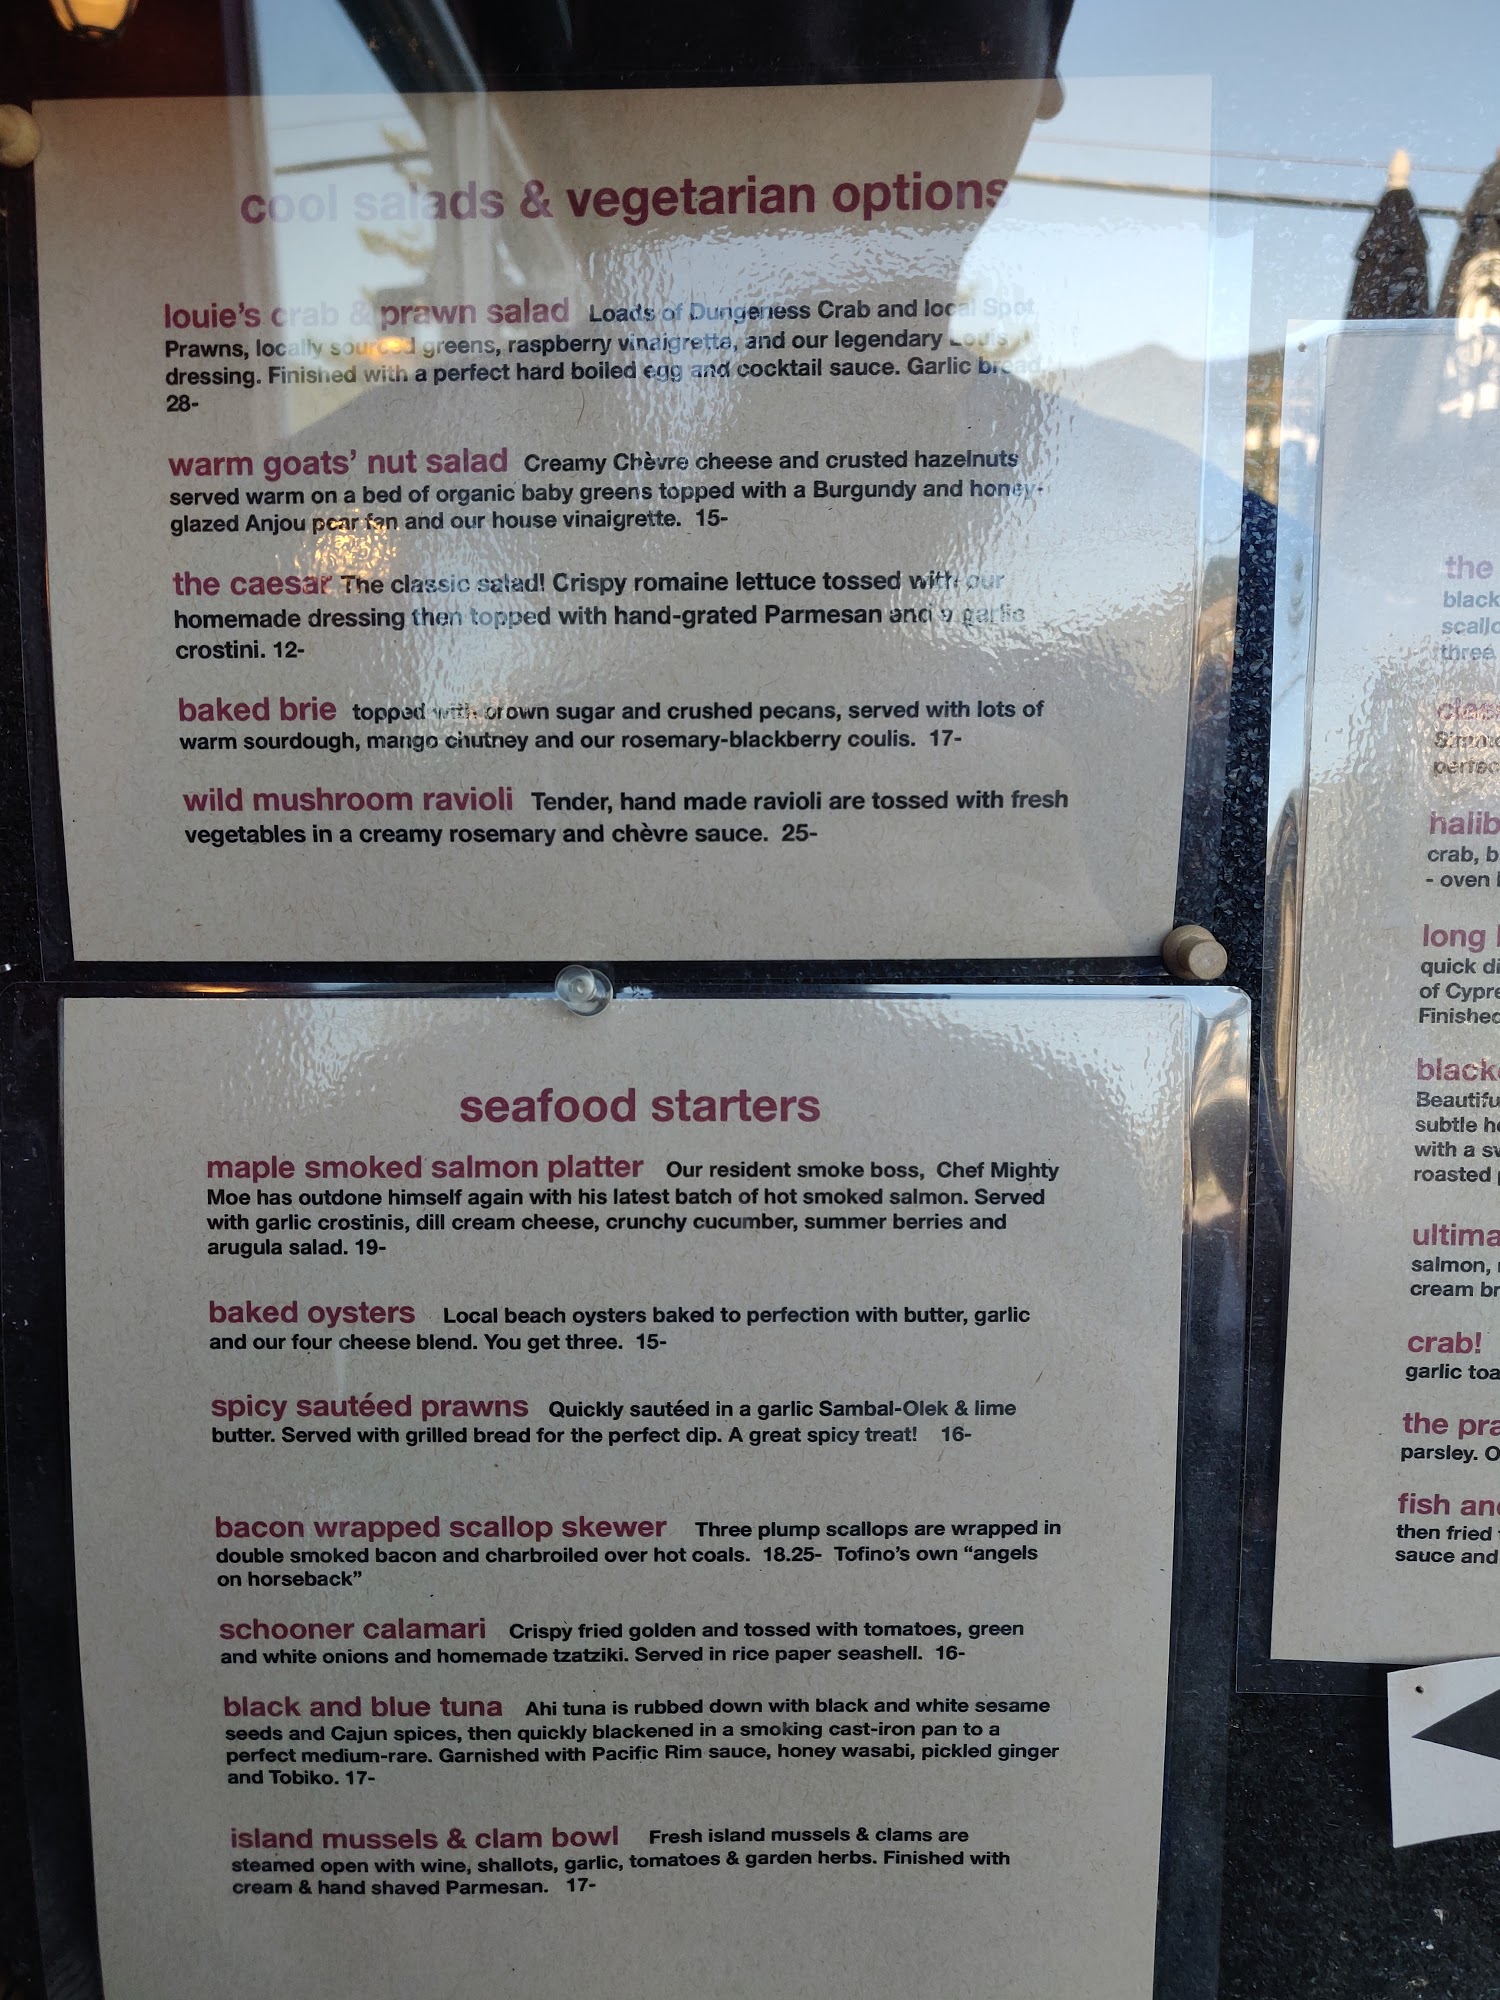 cool salads & vegetarian options
louie's crab & prawn salad Loads of Dungeness Crab and local Spot
Prawns, locally sourced greens, raspberry vinaigrette, and our legendary Louis
dressing. Finished with a perfect hard boiled egg and cocktail sauce. Garlic bread.
28-
warm goats' nut salad Creamy Chèvre cheese and crusted hazelnuts
served warm on a bed of organic baby greens topped with a Burgundy and honey-
glazed Anjou pear fan and our house vinaigrette. 15-
the caesar The classic salad! Crispy romaine lettuce tossed with our
homemade dressing then topped with hand-grated Parmesan and a garlic
crostini. 12-
baked brie topped with brown sugar and crushed pecans, served with lots of
warm sourdough, mango chutney and our rosemary-blackberry coulis. 17-
wild mushroom ravioli Tender, hand made ravioli are tossed with fresh
vegetables in a creamy rosemary and chèvre sauce. 25-
seafood starters
maple smoked salmon platter Our resident smoke boss, Chef Mighty
Moe has outdone himself again with his latest batch of hot smoked salmon. Served
with garlic crostinis, dill cream cheese, crunchy cucumber, summer berries and
arugula salad. 19-
baked oysters Local beach oysters baked to perfection with butter, garlic
and our four cheese blend. You get three. 15-
spicy sautéed prawns Quickly sautéed in a garlic Sambal-Olek & lime
butter. Served with grilled bread for the perfect dip. A great spicy treat! 16-
bacon wrapped scallop skewer Three plump scallops are wrapped in
double smoked bacon and charbroiled over hot coals. 18.25- Tofino's own "angels
on horseback"
schooner calamari Crispy fried golden and tossed with tomatoes, green
and white onions and homemade tzatziki. Served in rice paper seashell. 16-
black and blue tuna Ahi tuna is rubbed down with black and white sesame
seeds and Cajun spices, then quickly blackened in a smoking cast-iron pan to a
perfect medium-rare. Garnished with Pacific Rim sauce, honey wasabi, pickled ginger
and Tobiko. 17-
island mussels & clam bowl Fresh island mussels & clams are
steamed open with wine, shallots, garlic, tomatoes & garden herbs. Finished with
cream & hand shaved Parmesan. 17-
the
black
three
crab, b
- oven
long
quick di
of Cypre
Finished
subtle
with a
roasted
salmon,
cream
crab!
garlic
the
parsley.
fish
then fried
sauce and